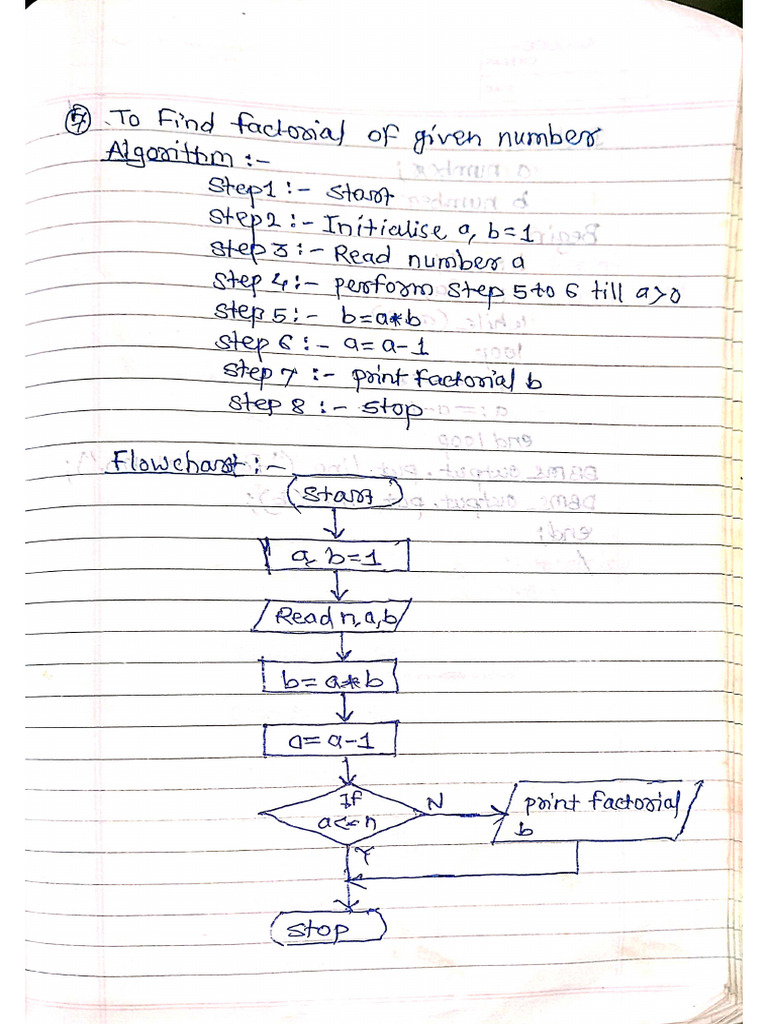 ⑤ To Find factorial of given number
Algorithm :-
Step1 :- start
Step2 :- Initialise a, b=1
Step 3 :- Read number a
Step 4 :- perform step 5 to 6 till a>0
Step 5 :- b=a*b
Step 6 :- a= a-1
Step 7 :- print factorial b
Step 8 :- stop
Flowchart :-
Start
a, b=1
Read n,a,b
b= a*b
a= a-1
If
a<=n
N
print factorial
b
Y
stop